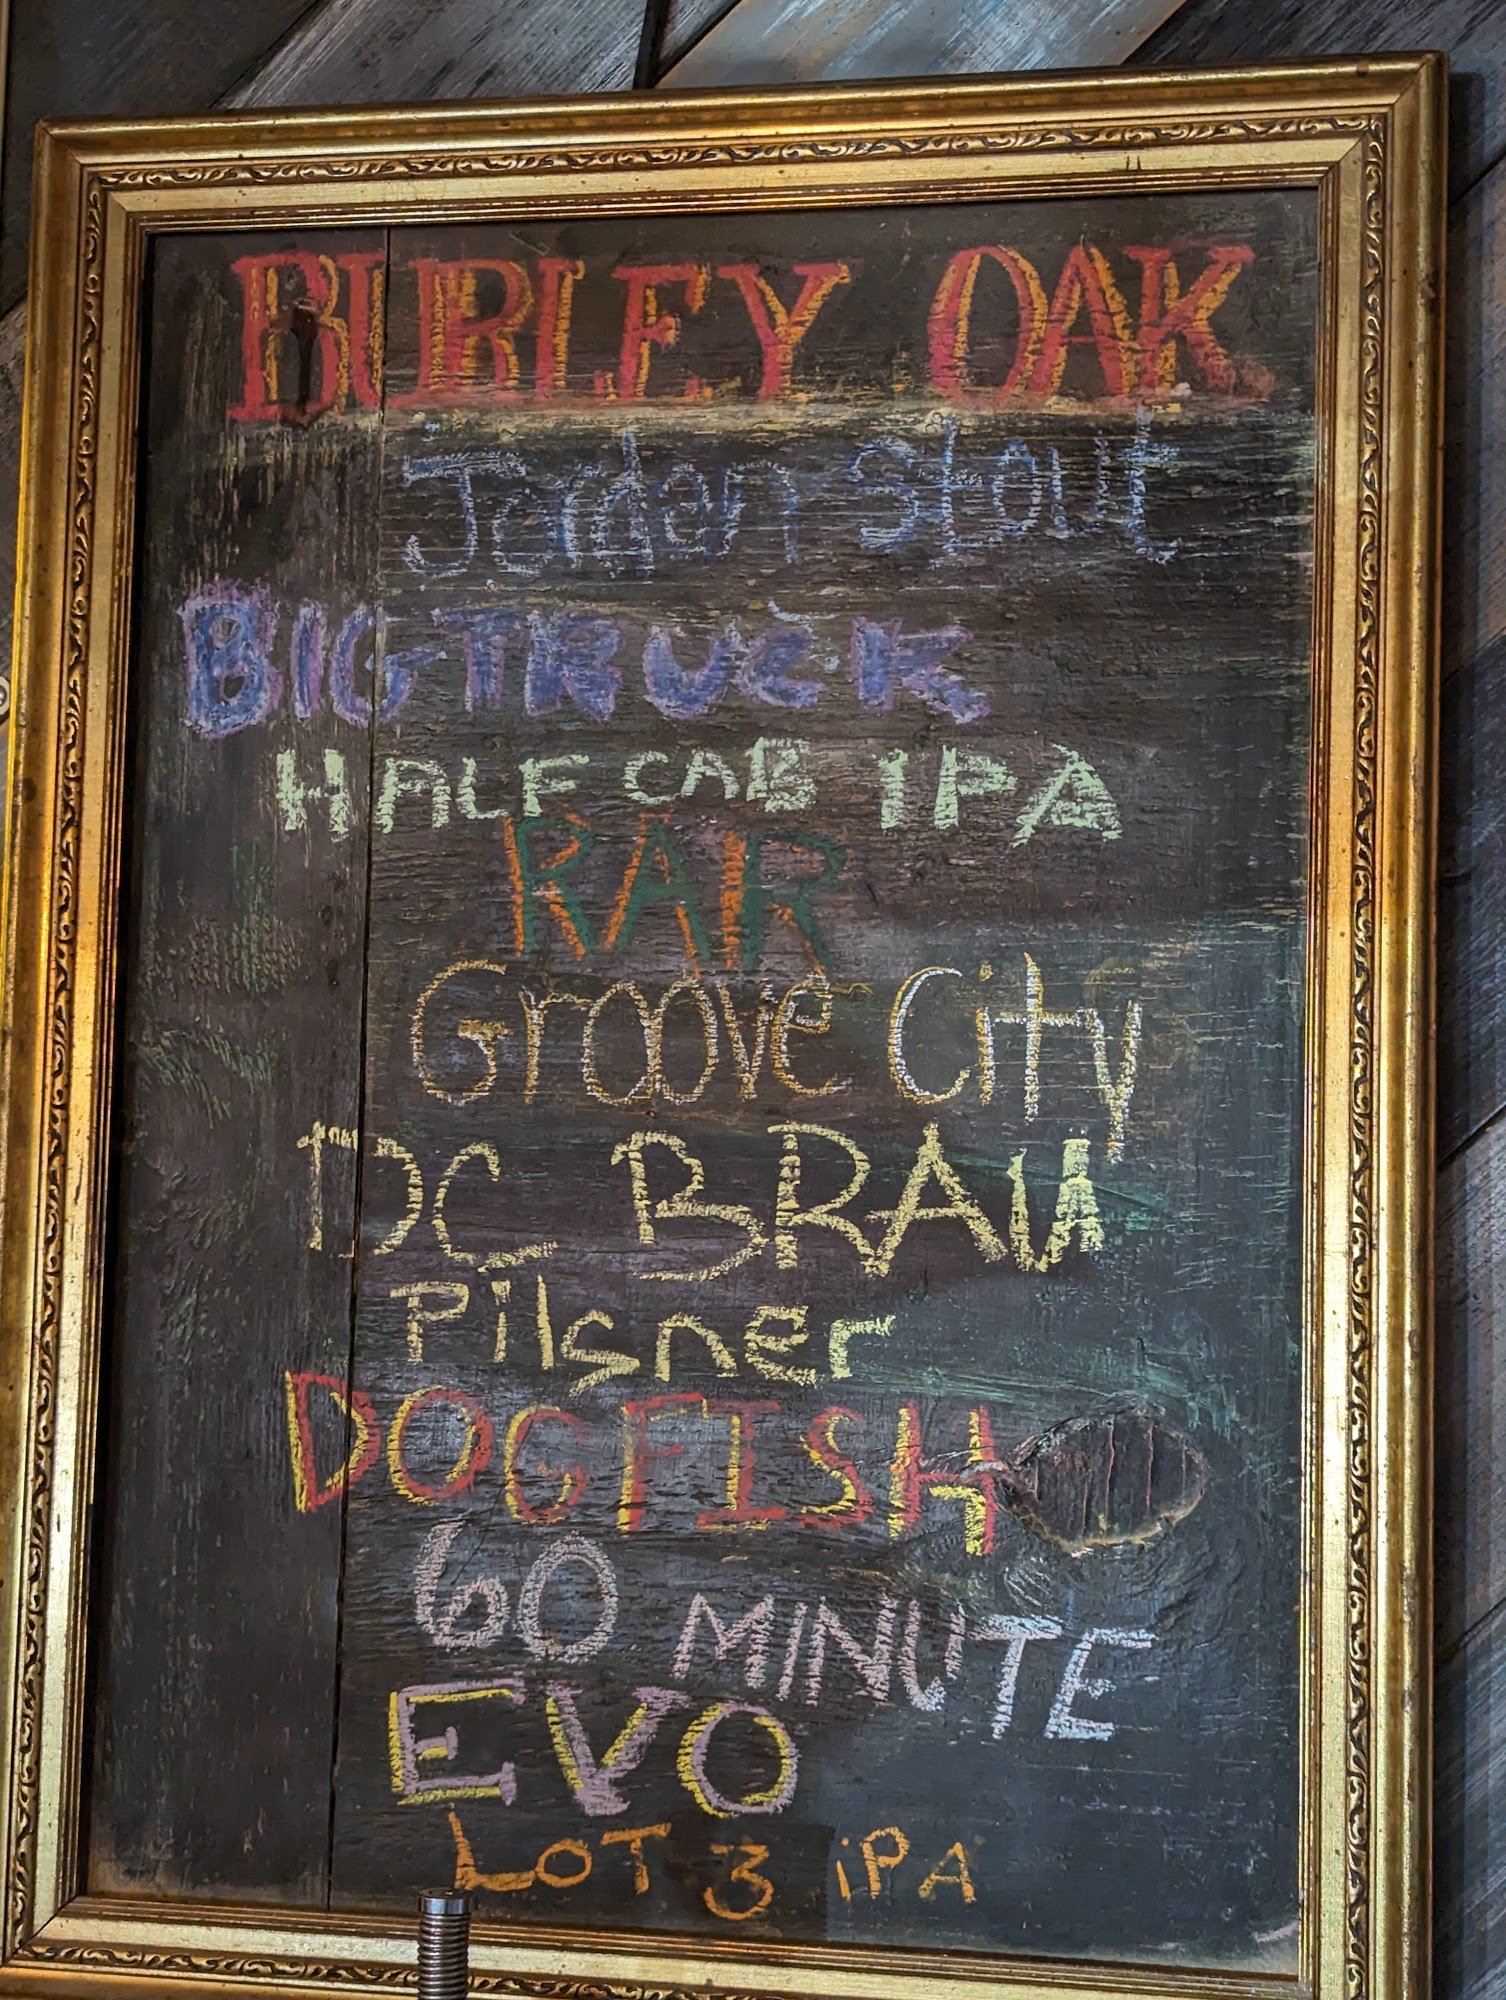 BURLEY OAK
Jorden Stout
BIG TRUCK
HALF CAB IPA
RAR
Groove City
DC BRAU
Pilsner
DOGFISH
60 MINUTE
EVO
LOT 3 iPA